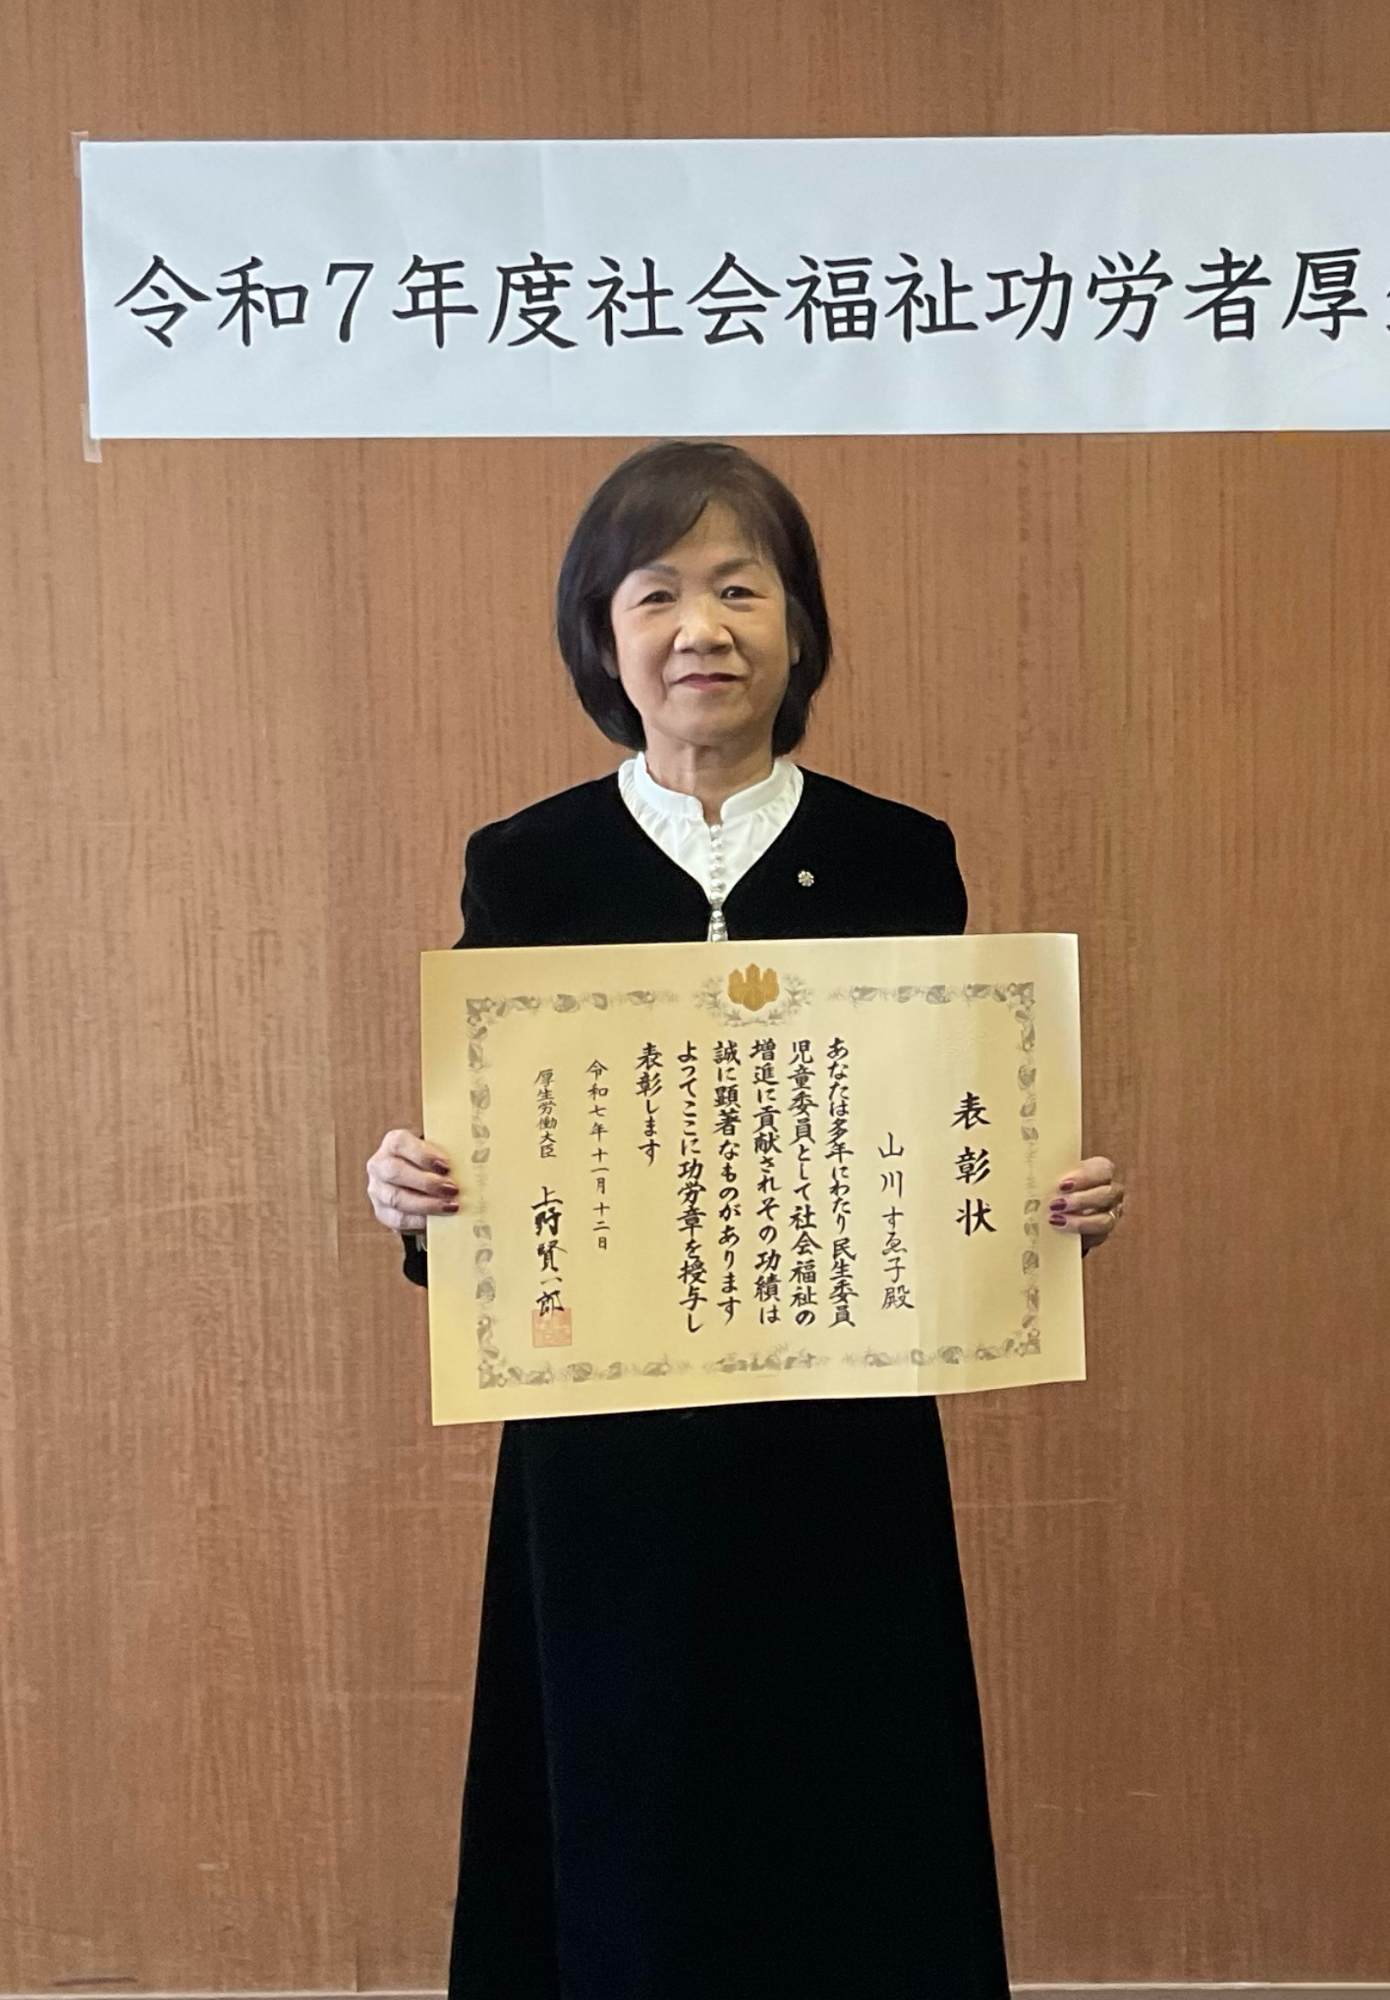 令和7年度社会福祉功労者厚
表彰状
山川すゑ子殿
あなたは多年にわたり民生委員
児童委員として社会福祉の
増進に貢献されその功績は
誠に顕著なものがあります
よってここに功労章を授与し
表彰します
令和七年十一月十二日
厚生労働大臣 上野賢一郎